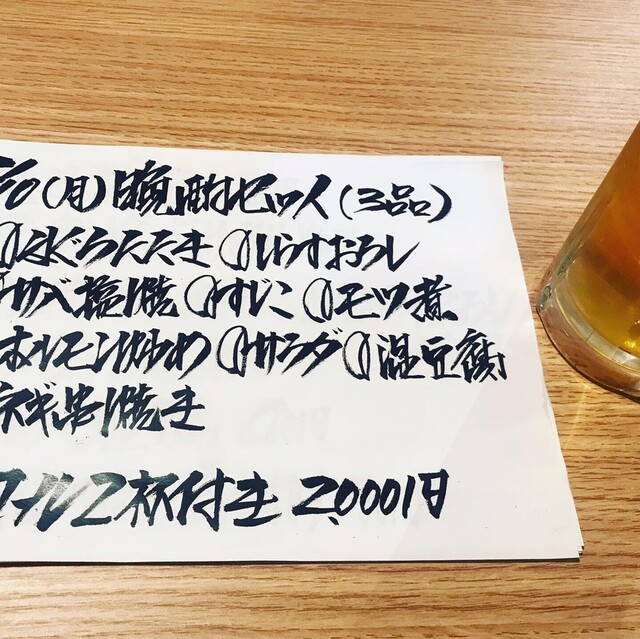 /10(月)晩酌セット(3品)
()まぐろたたき ()しらすおろし
サバ塩焼 ()すじこ ()モツ煮
ホルモン炒め ()サラダ ()温豆腐
ネギ串焼き
アルコール2杯付き 2,000円